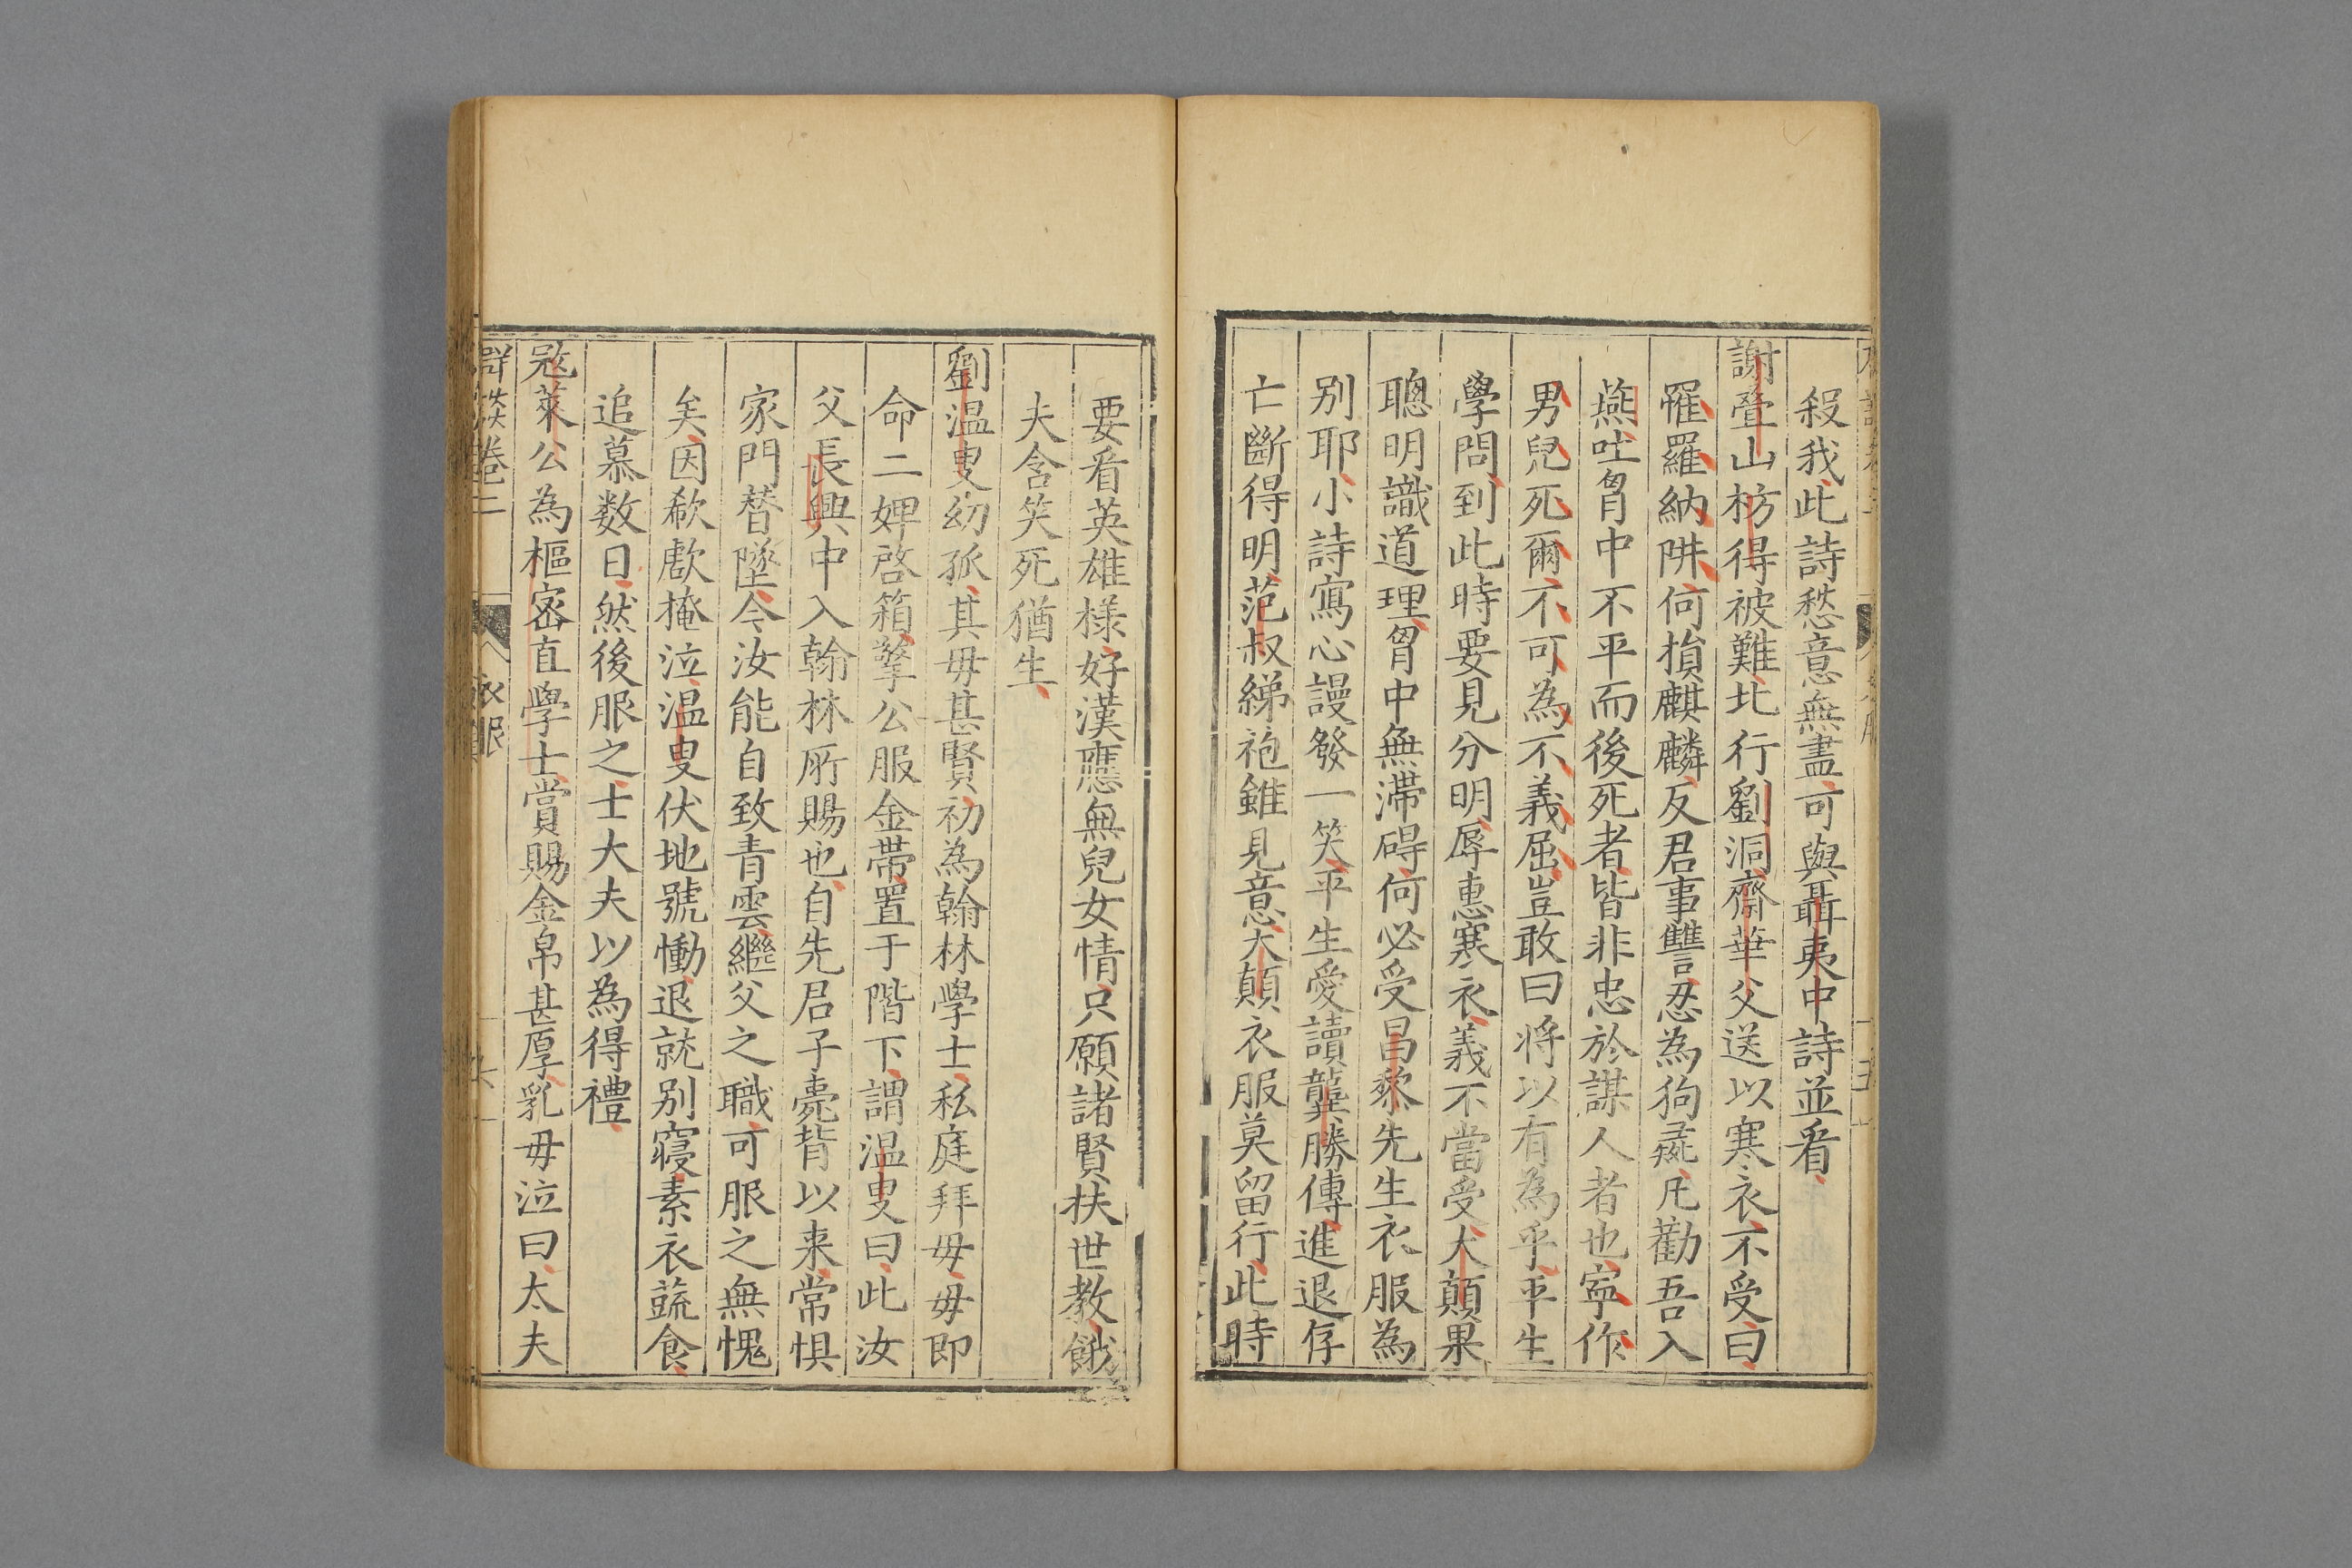 殺我此詩愁意無盡可與聶夷中詩並看
謝疊山枋得被難北行劉洞齋華父送以寒衣不受曰
罹羅納阱何損麒麟反君事讐忍為狗彘凡勸吾入
燕吐胷中不平而後死者皆非忠於謀人者也寧作
男兒死爾不可為不義屈豈敢曰将以有為乎平生
學問到此時要見分明辱惠寒衣義不當受大顛果
聰明識道理胷中無滞碍何必受昌黎先生衣服為
别耶小詩寫心謾發一笑平生愛讀龔勝傳進退存
亡斷得明范叔綈袍雖見意大顛衣服莫留行此時
要看英雄様好漢應無兒女情只願諸賢扶世教餓
夫含笑死猶生
劉温叟幼孤其毋甚賢初為翰林學士私庭拜毋毋即
命二婢啓箱擎公服金帶置于階下謂温叟曰此汝
父長興中入翰林所賜也自先君子薨背以来常惧
家門替墜今汝能自致青雲繼父之職可服之無愧
矣因欷歔掩泣温叟伏地號慟退就别寝素衣蔬食
追慕数日然後服之士大夫以為得禮
冦萊公為樞宻直學士賞賜金帛甚厚乳毋泣曰太夫
群談卷二 衣服 六